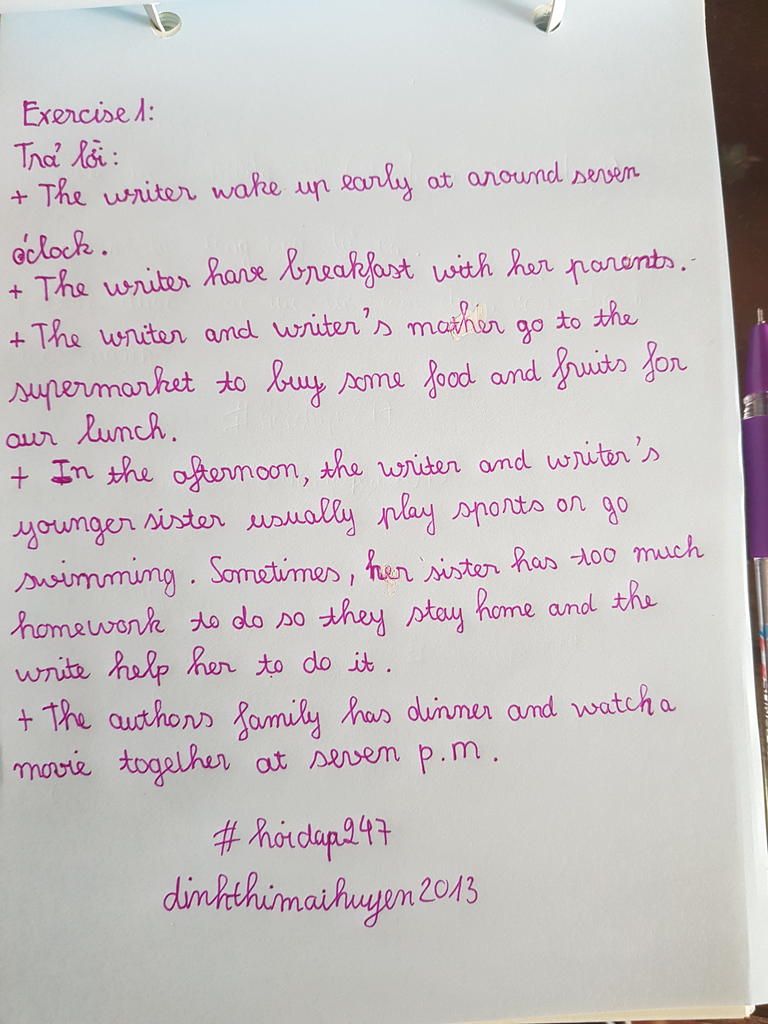 Exercise 1:
Trả lời:
+ The writer wake up early at around seven
o'clock.
+ The writer have breakfast with her parents.
+ The writer and writer's mother go to the
supermarket to buy some food and fruits for
our lunch.
+ In the afternoon, the writer and writer's
younger sister usually play sports or go
swimming. Sometimes, her sister has too much
homework to do so they stay home and the
write help her to do it.
+ The authors family has dinner and watch a
movie together at seven p.m.
# hoidap247
dinhthimaihuyen2013